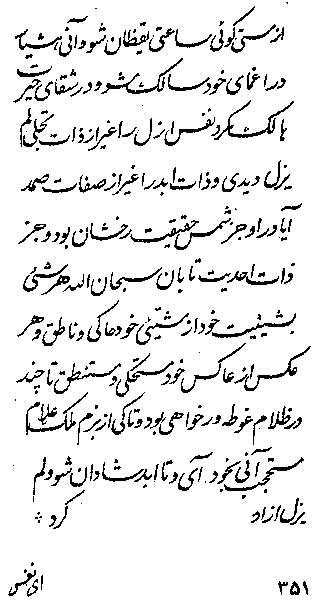 از مستی کوئی ساعتی یقظان شو و آنی هشیار
در اغمای خود سالک شو و در شقای حیرت
هالک مکرد نفس ازل را غیر از ذات تجلی لم
یزل دیدی و ذات ابد را غیر از صفات صمد
آیا در او جز شمس حقیقت رخشان بود و جز
ذات احدیت تابان سبحان الله هر شئی
بشیئیت خود از مشیّتی خود حاکی و ناطق و هر
عکس از عاکس خود مستحکی و مستنطق تا چند
در ظلام غوطه ور خواهی بود و تا کی از بزم ملک علام
محتجب آنی بخود آی و تا ابد شادان شو و لم
یزل آزاد کرد
ای نفس
۳۵۱